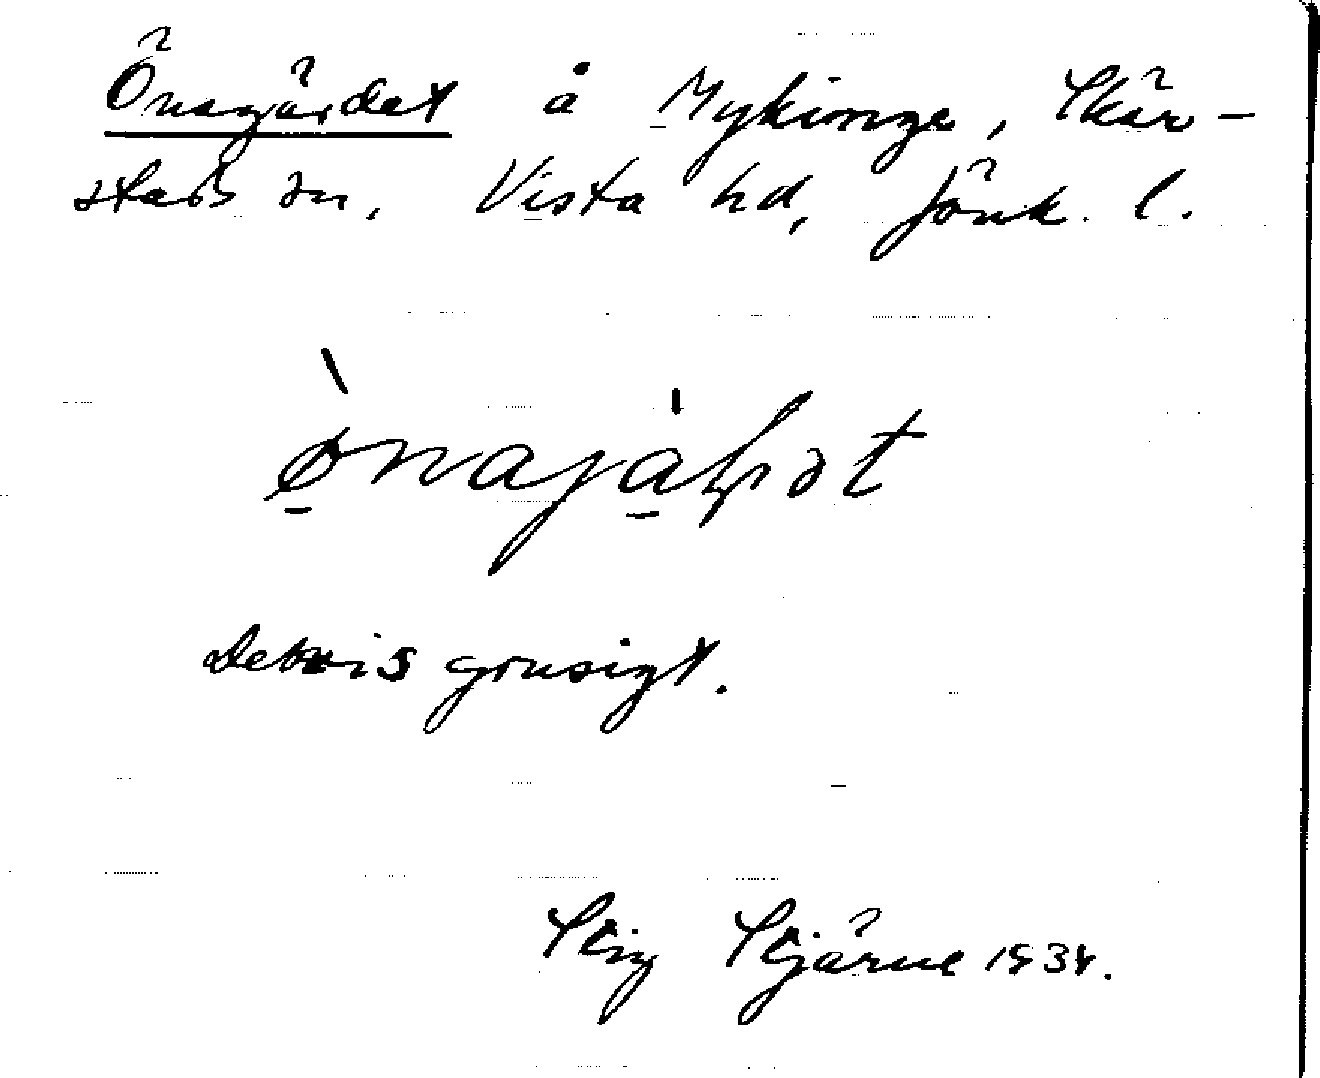 Önagärdet å Mykinge, Skär-
stads sn, Vista hd, Jönk. l.
Delvis grusigt.
Stig Stjärne 1934.